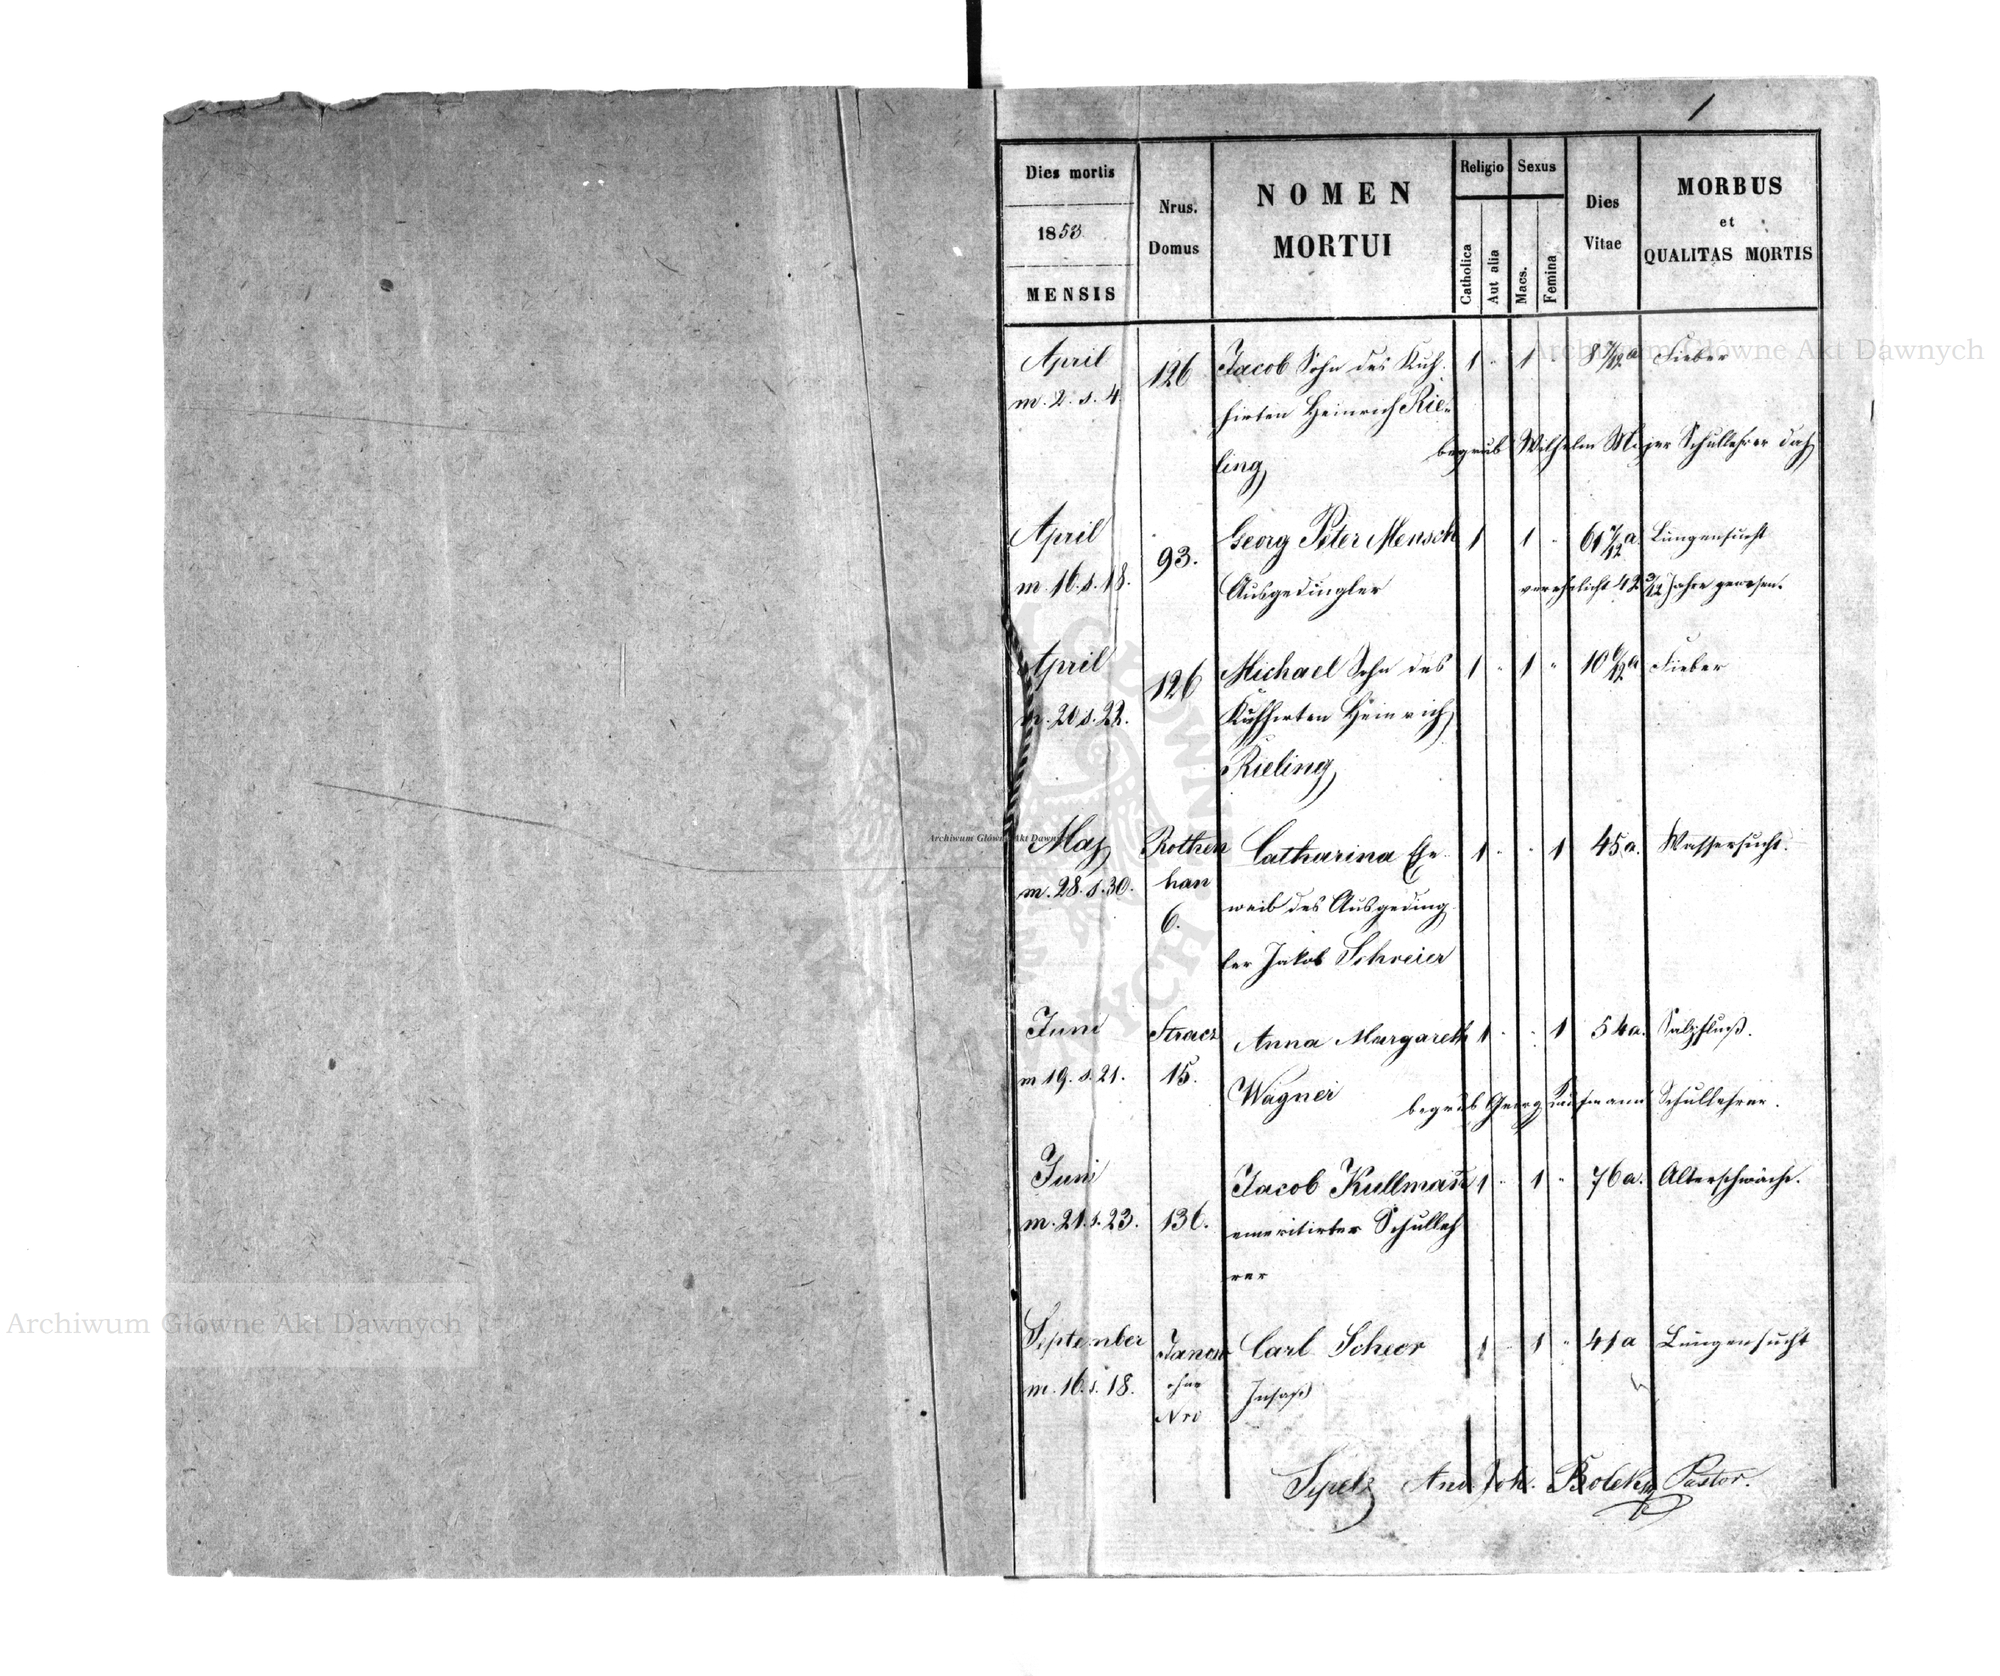 1
Dies mortis
1853
MENSIS
Nrus.
Domus
NOMEN
MORTUI
Religio
Catholica
Aut alia
Sexus
Macs.
Femina
Dies
Vitae
MORBUS
et
QUALITAS MORTIS
April
m. 2. s. 4.
126
Jacob Sohn des Kuh-
hirten Heinrich Rie-
ling
1 " 1 "
8 7/12 a
Fieber
begrub Wilhelm Majer Schullehrer
April
m. 16. s. 18.
93.
Georg Peter Mensch
Ausgedingler
1 1 "
Lungensucht
verehelicht 42 3/12 Jahre gewesen.
April
m. 20 s. 22.
126
Michael Sohn des
Kuhhirten Heinrich
Rieling
1 " 1 "
Fieber
Maj
m. 28. s. 30.
Rothen
han
6.
Catharina Ehe
weib des Ausgeding
ler Jakob Schreier
1 " " 1
45 a.
Wassersucht.
Juni
m 19. s. 21.
Stracz
15.
Anna Margareth
Wagner
1 " " 1
54 a.
Salzfluß.
begrub Georg Kaufmann Schullehrer.
Juni
m. 21. s. 23.
136.
Jacob Kullman
emeritirter Schulleh
rer
1 " 1 "
76 a.
Alterschwäche.
September
m. 16. s. 18.
Janow
ohne
Nro
Carl Scheer
Insaß
1 " 1 "
41 a
Lungensucht
And. Joh. Pastor.
Archiwum Główne Akt Dawnych
Archiwum Główne Akt Dawnych
Archiwum Główne Akt Dawnych
ARCHIWUM GŁÓWNE AKT DAWNYCH